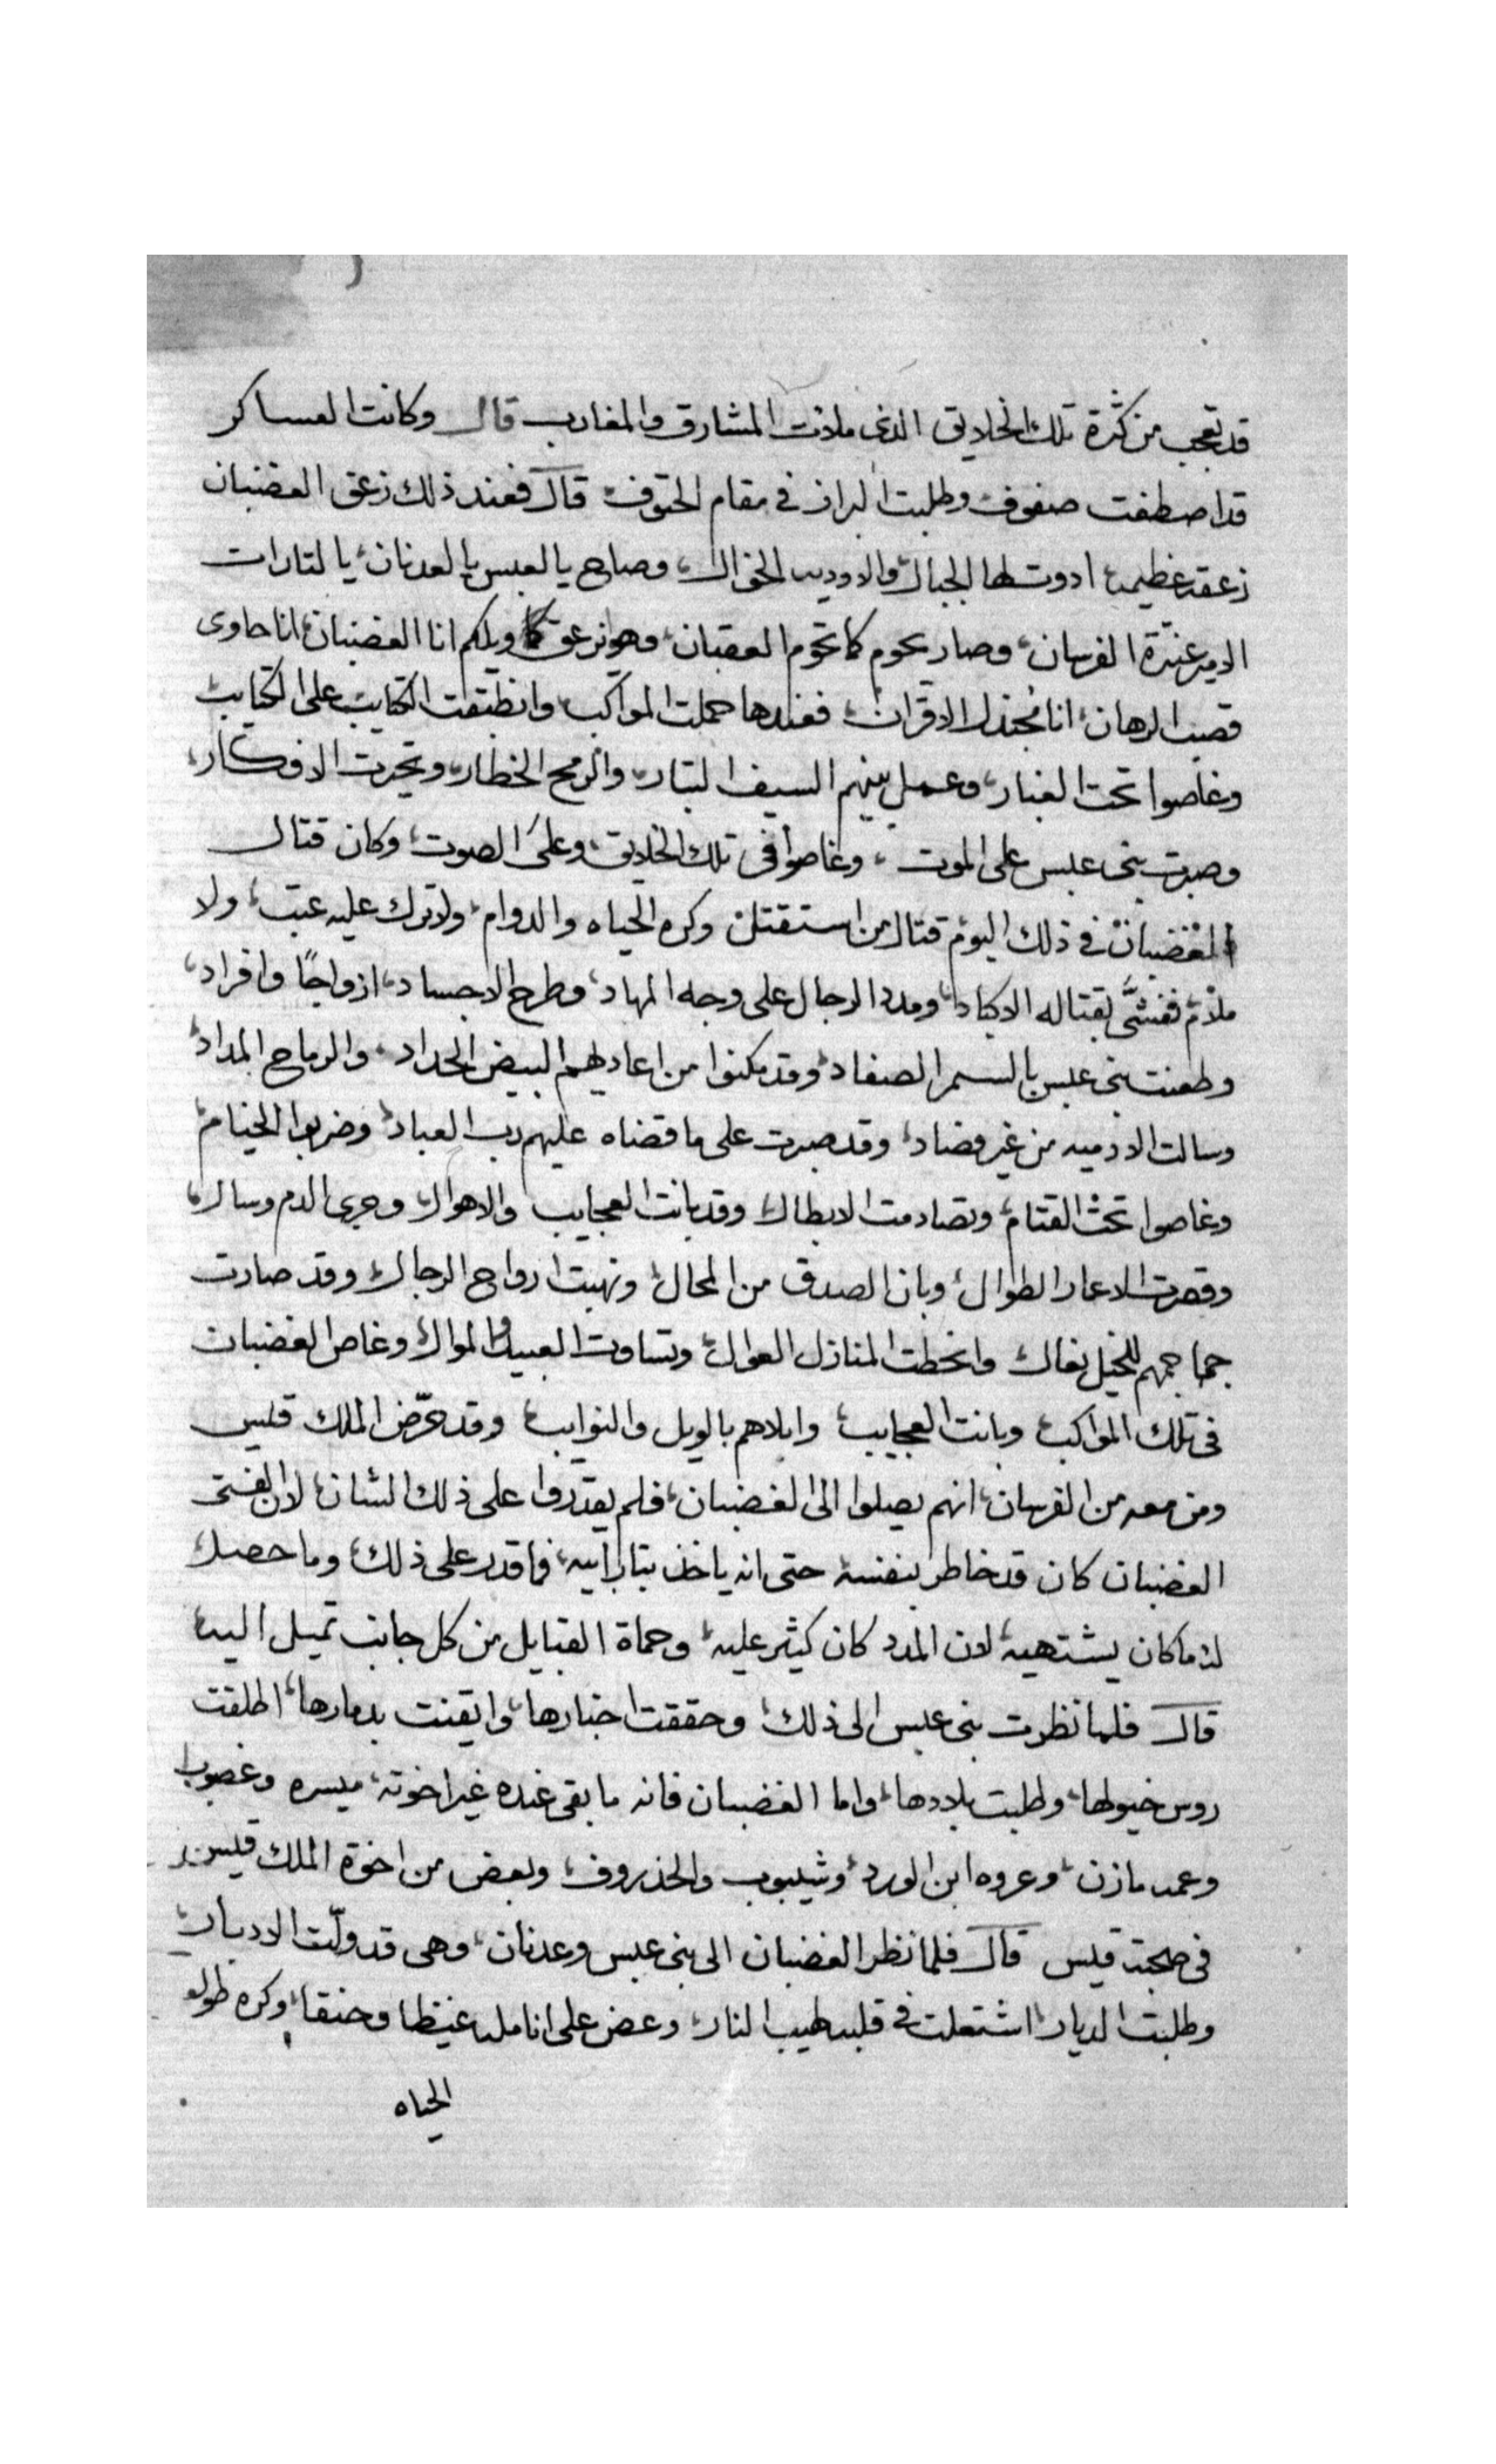 قد تعجب من كثرة تلك الخلايق الذى ملات المشارق والمغارب قال وكانت العساكر
قد اصطفت صفوف وطلبت البراز فى مقام الحتوف قال فعند ذلك زعق الغضبان
زعقه عظيمه ادوت لها الجبال والاوديه الخوال وصاح يا لعبس يا لعدنان يا لتارات
الامير عنترة الفرسان وصار يحوم كما تحوم العقبان وهو يزعق ويلكم انا الغضبان انا حاوى
قصب الرهان انا مجندل الاقران فعندها حملت المواكب وانطبقت الكتايب على الكتايب
وغاصوا تحت الغبار وعمل بينهم السيف البتار والرمح الخطار وتحيرت الافكار
وصبرت بنى عبس على الموت وغاصوا فى تلك الخلايق وعلى الصوت وكان قتال
الغضبان فى ذلك اليوم قتال من استقتل وكره الحياه والدوام ولا ترك عليه عتب ولا
ملام ففتّت بقتاله الاكباد ومدد الرجال على وجه المهاد وطرح الاجساد ازواجًا وافراد
وطعنت بنى عبس بالسمر الصعاد وقد مكنوا من اعاديهم البيض الحداد والرماح المداد
وسالت الادميه من غير فصاد وقد صبرت على ما قضاه عليهم رب العباد وضربوا الخيام
وغاصوا تحت القتام وتصادمت الابطال وقد بانت العجايب والاهوال وجرى الدم وسال
وقصرت الاعمار الطوال وبان الصدق من المحال ونهبت ارواح الرجال وقد صارت
جماجمهم للخيل نعال وانحطت المنازل العوال وتساوت العبيد والموال وغاص الغضبان
فى تلك المواكب وبانت العجايب وابلاهم بالويل والنوايب وقد حرّض الملك قيس
ومن معه من الفرسان انهم يصلوا الى الغضبان فلم يقدروا على ذلك الشان لان الفتى
الغضبان كان قد خاطر بنفسه حتى انه ياخذ بتار ابيه فما قدر على ذلك وما حصل
له ما كان يشتهيه لان المدد كان كثير عليه وحماة القبايل من كل جانب تميل اليه
قال فلما نظرت بنى عبس الى ذلك وحققت اخبارها وايقنت بدمارها اطلقت
روس خيولها وطلبت بلادها واما الغضبان فانه ما بقى عنده غير اخوته ميسره وغصوب
وعمه مازن وعروه ابن الورد وشيبوب والخذروف وبعض من اخوة الملك قيس
فى صحبة قيس قال فلما نظر الغضبان الى بنى عبس وعدنان وهى قد ولّت الادبار
وطلبت الديار اشتعلت فى قلبه لهيب النار وعض على انامله غيظا وحنقا وكره طول
الحياه